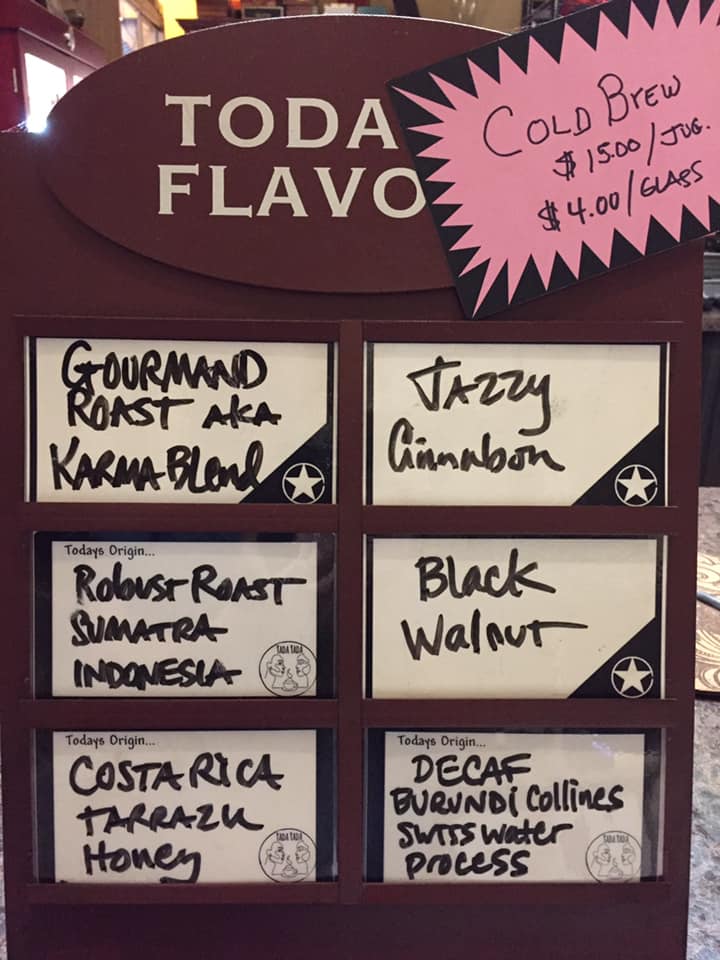 TODA
FLAVO
COLD BREW
$15.00/JUG.
$4.00/GLASS
GOURMAND
ROAST AKA
KARMA BLend
JAZZY
Cinnabon
Todays Origin...
RobusT ROAST
SUMATRA
INDONESIA
YADA YADA
Black
Walnut
Todays Origin...
COSTA RICA
TARRAZU
Honey
YADA YADA
Todays Origin...
DECAF
BURUNDi Collines
SWISS water
process
YADA YADA